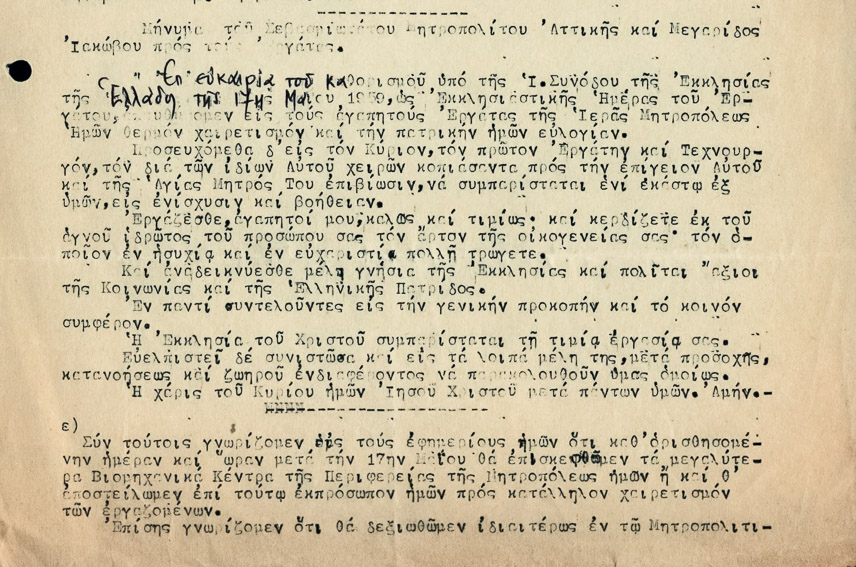 Μήνυμα τοῦ Σεβασμιωτάτου Μητροπολίτου Ἀττικῆς καί Μεγαρίδος
Ἰακώβου πρός τούς ἐργάτας.
"Ἐπ' εὐκαιρίᾳ τοῦ καθορισμοῦ ὑπό τῆς Ἱ.Συνόδου τῆς Ἐκκλησίας
τῆς Ἑλλάδος τῆς 17ης Μαΐου 1959,ὡς Ἐκκλησιαστικῆς Ἡμέρας τοῦ Ἐρ-
γάτου, εἰς τούς ἀγαπητούς Ἐργάτας τῆς Ἱερᾶς Μητροπόλεως
Ἡμῶν θερμόν χαιρετισμόν καί τήν πατρικήν ἡμῶν εὐλογίαν.
Προσευχόμεθα δ'εἰς τόν Κύριον,τόν πρῶτον Ἐργάτην καί Τεχνουρ-
γόν,τόν διά τῶν ἰδίων Αὐτοῦ χειρῶν κοπιάσαντα πρός τήν ἐπίγειον Αὐτοῦ
καί τῆς Ἁγίας Μητρός Του ἐπιβίωσιν,νά συμπαρίσταται ἑνί ἑκάστῳ ἐξ
ὑμῶν,εἰς ἐνίσχυσιν καί βοήθειαν.
Ἐργάζεσθε,ἀγαπητοί μου,καλῶς καί τιμίως· καί κερδίζετε ἐκ τοῦ
ἁγνοῦ ἱδρῶτος τοῦ προσώπου σας τόν ἄρτον τῆς οἰκογενείας σας· τόν ὁ-
ποῖον ἐν ἡσυχίᾳ καί ἐν εὐχαριστίᾳ πολλῇ τρώγετε.
Καί ἀναδεικνύεσθε μέλη γνήσια τῆς Ἐκκλησίας καί πολῖται ἄξιοι
τῆς Κοινωνίας καί τῆς Ἑλληνικῆς Πατρίδος.
Ἐν παντί συντελοῦντες εἰς τήν γενικήν προκοπήν καί τό κοινόν
συμφέρον.
Ἡ Ἐκκλησία τοῦ Χριστοῦ συμπαρίσταται τῇ τιμίᾳ ἐργασίᾳ σας.
Εὐελπιστεῖ δέ συνιστῶσα καί εἰς τά λοιπά μέλη της,μετά προσοχῆς,
κατανοήσεως καί ζωηροῦ ἐνδιαφέροντος νά παρακολουθοῦν ὑμᾶς ὁμοίως.
Ἡ χάρις τοῦ Κυρίου ἡμῶν Ἰησοῦ Χριστοῦ μετά πάντων ὑμῶν. Ἀμήν.-
ε)
Σύν τούτοις γνωρίζομεν εἰς τούς ἐφημερίους ἡμῶν ὅτι καθ'ὁρισθησομέ-
νην ἡμέραν καί ὥραν μετά τήν 17ην Μαΐου θά ἐπισκεφθῶμεν τά μεγαλύτε-
ρα Βιομηχανικά Κέντρα τῆς Περιφερείας τῆς Μητροπόλεως ἡμῶν ἤ καί θ'
ἀποστείλωμεν ἐπί τούτῳ ἐκπρόσωπον ἡμῶν πρός κατάλληλον χαιρετισμόν
τῶν ἐργαζομένων.
Ἐπίσης γνωρίζομεν ὅτι θά δεξιωθῶμεν ἰδιαιτέρως ἐν τῷ Μητροπολιτι-